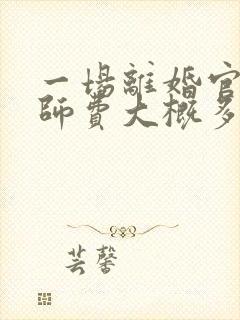 一場離婚官
師費大概多
芸馨